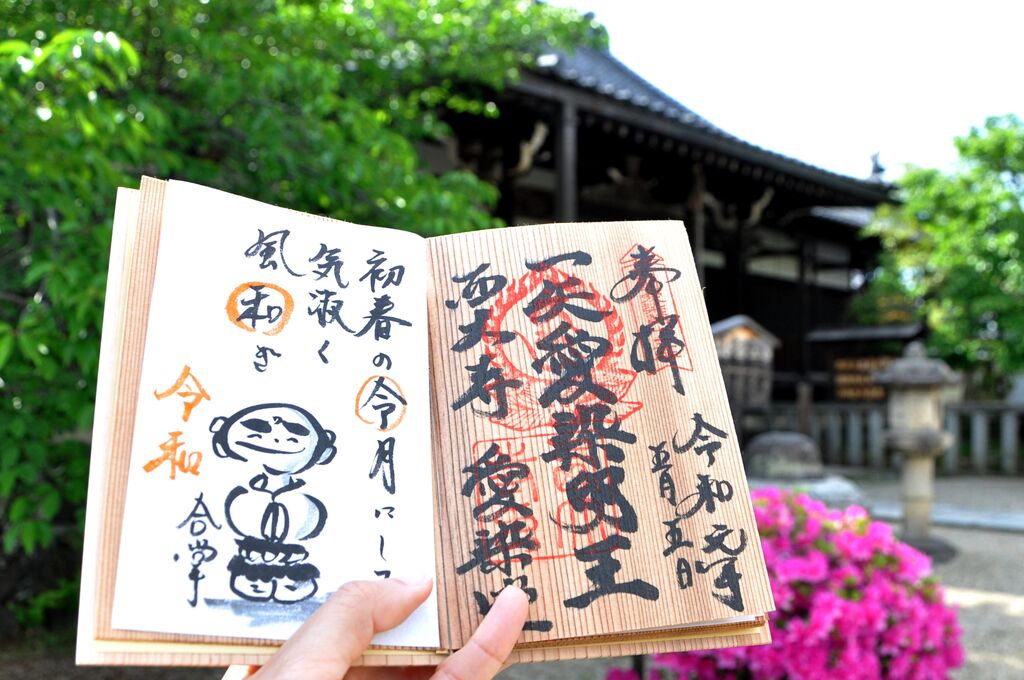 奉拝
令和元年
五月五日
愛染明王
西大寺 愛染
初春の令月にして
気淑く
風和ぎ
令和
合掌